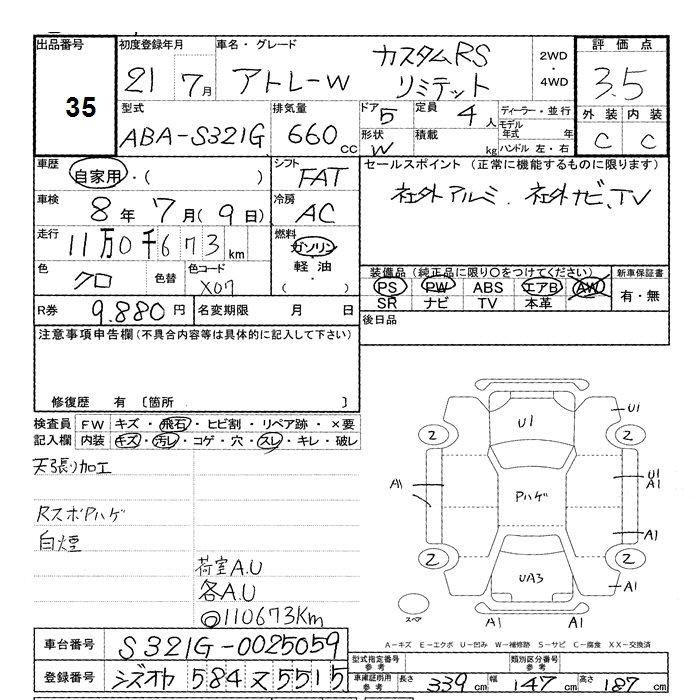 出品番号
35
初度登録年月
21 7月
車名・グレード
アトレーW カスタムRS
リミテット
2WD
・
4WD
評価点
3.5
外装 内装
C C
型式
ABA-S321G
排気量
660cc
ドア 5
形状 W
定員 4人
積載 kg
ディーラー・並行
モデル年式 年
ハンドル 左・右
車歴
自家用・( )
シフト
FAT
車検
8年 7月(9日)
冷房
AC
走行
11万0千673km
燃料
ガソリン
・
軽油
・
( )
色
クロ
色替
色コード
X07
R券 9.880円
名変期限 月 日
セールスポイント(正常に機能するものに限ります)
社外アルミ、社外ナビ、TV
装備品(純正品に限り〇をつけてください)
PS PW ABS エアB AW
SR ナビ TV 本革
新車保証書
有・無
後日品
注意事項申告欄(不具合内容等は具体的に記入して下さい)
修復歴 有〔箇所 〕
検査員 FW キズ・飛石・ヒビ割・リペア跡・×要
記入欄 内装 キズ・汚レ・コゲ・穴・スレ・キレ・破レ
天張り加工
RスポPハゲ
白煙
荷室A.U
各A.U
◎110673Km
U1
U1
2
2
A1
Pハゲ
U1
A1
A1
2
2
UA3
A1
スペア
A1
A1
A-キズ E-エクボ U-凹み W-補修跡 S-サビ C-腐食 XX-交換済
車台番号 S321G-0025059
登録番号 シズオカ 584 ヌ 5515
型式指定番号
参考
類別区分番号
参考
車庫証明用
参考
長さ 339cm 幅 147cm 高さ 187cm